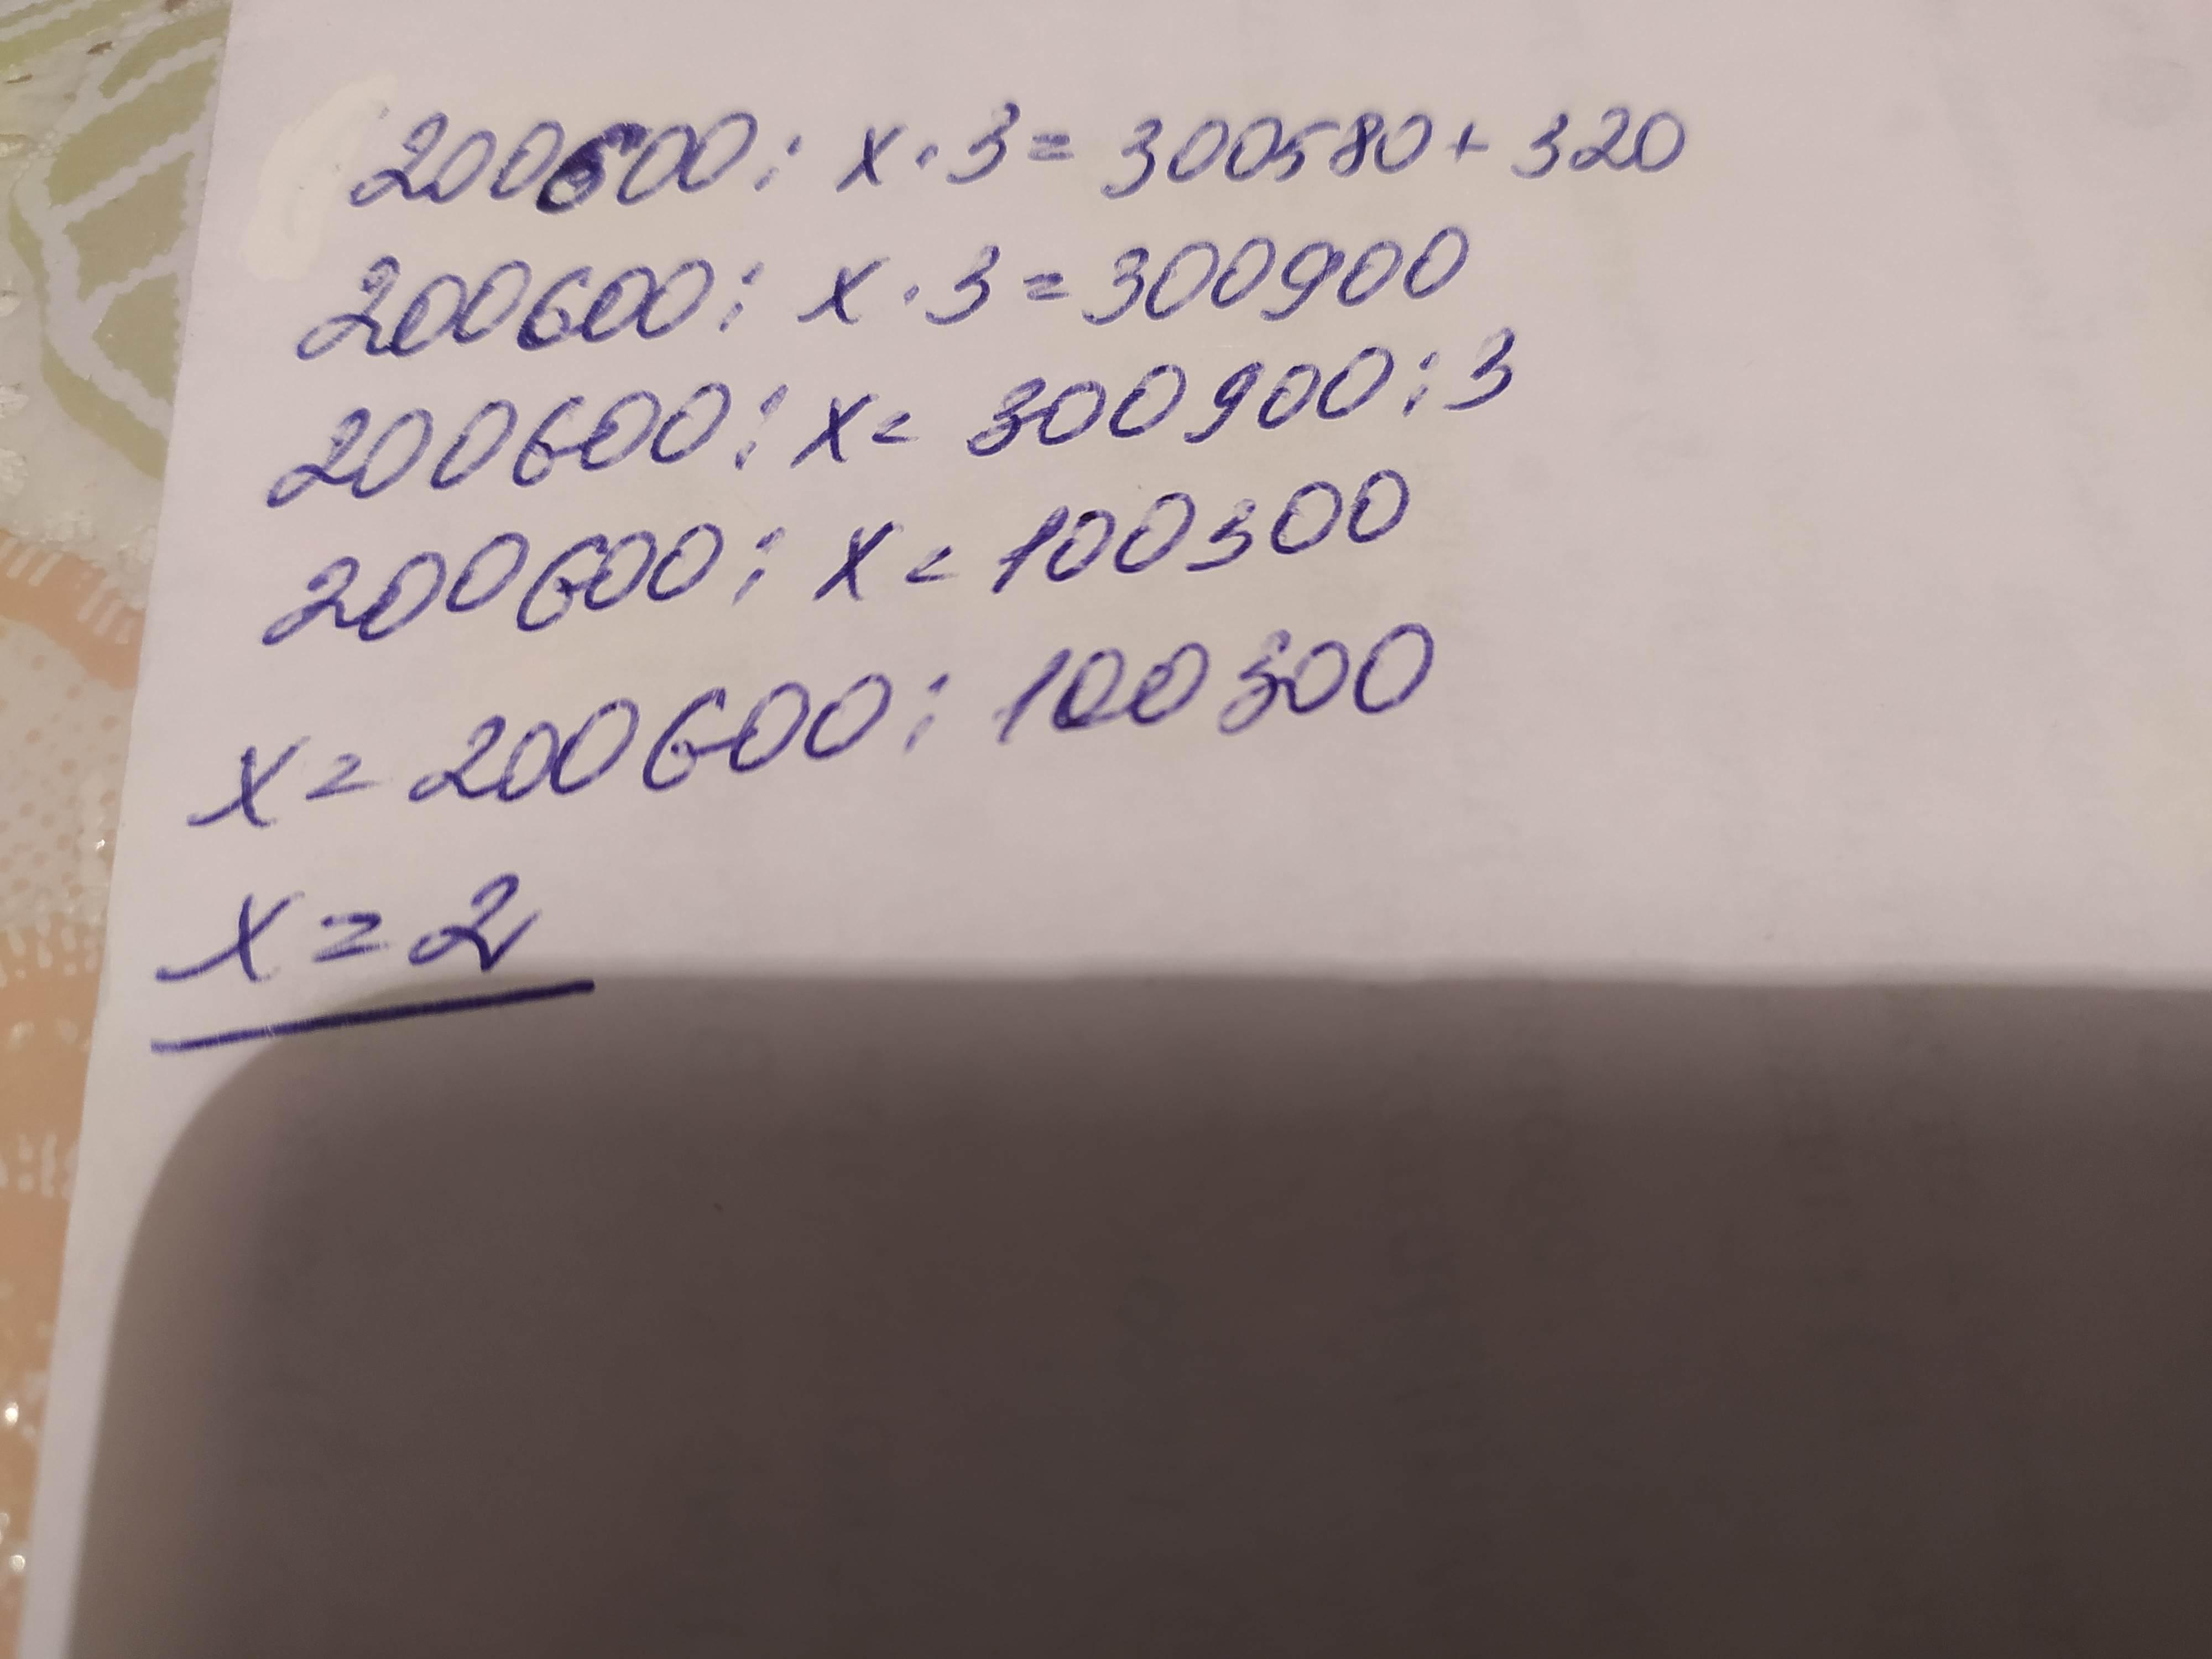 200600 : x · 3 = 300580 + 320
200600 : x · 3 = 300900
200600 : x = 300900 : 3
200600 : x = 100300
x = 200600 : 100300
x = 2